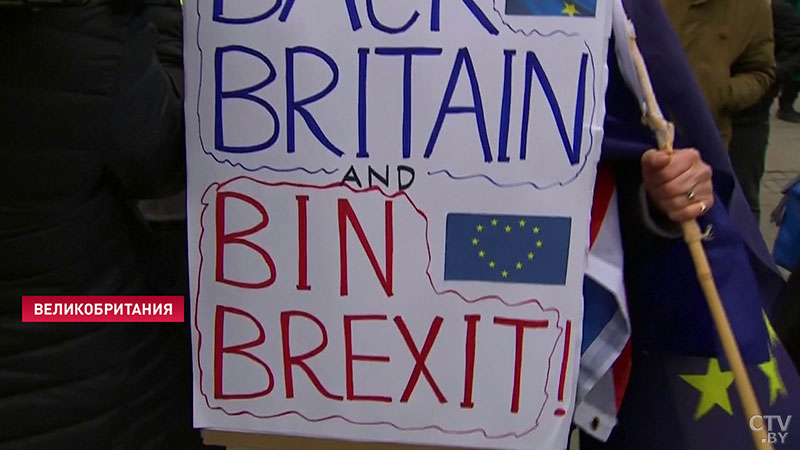 BACK
BRITAIN
AND
BIN
BREXIT!
ВЕЛИКОБРИТАНИЯ
CTV
.BY